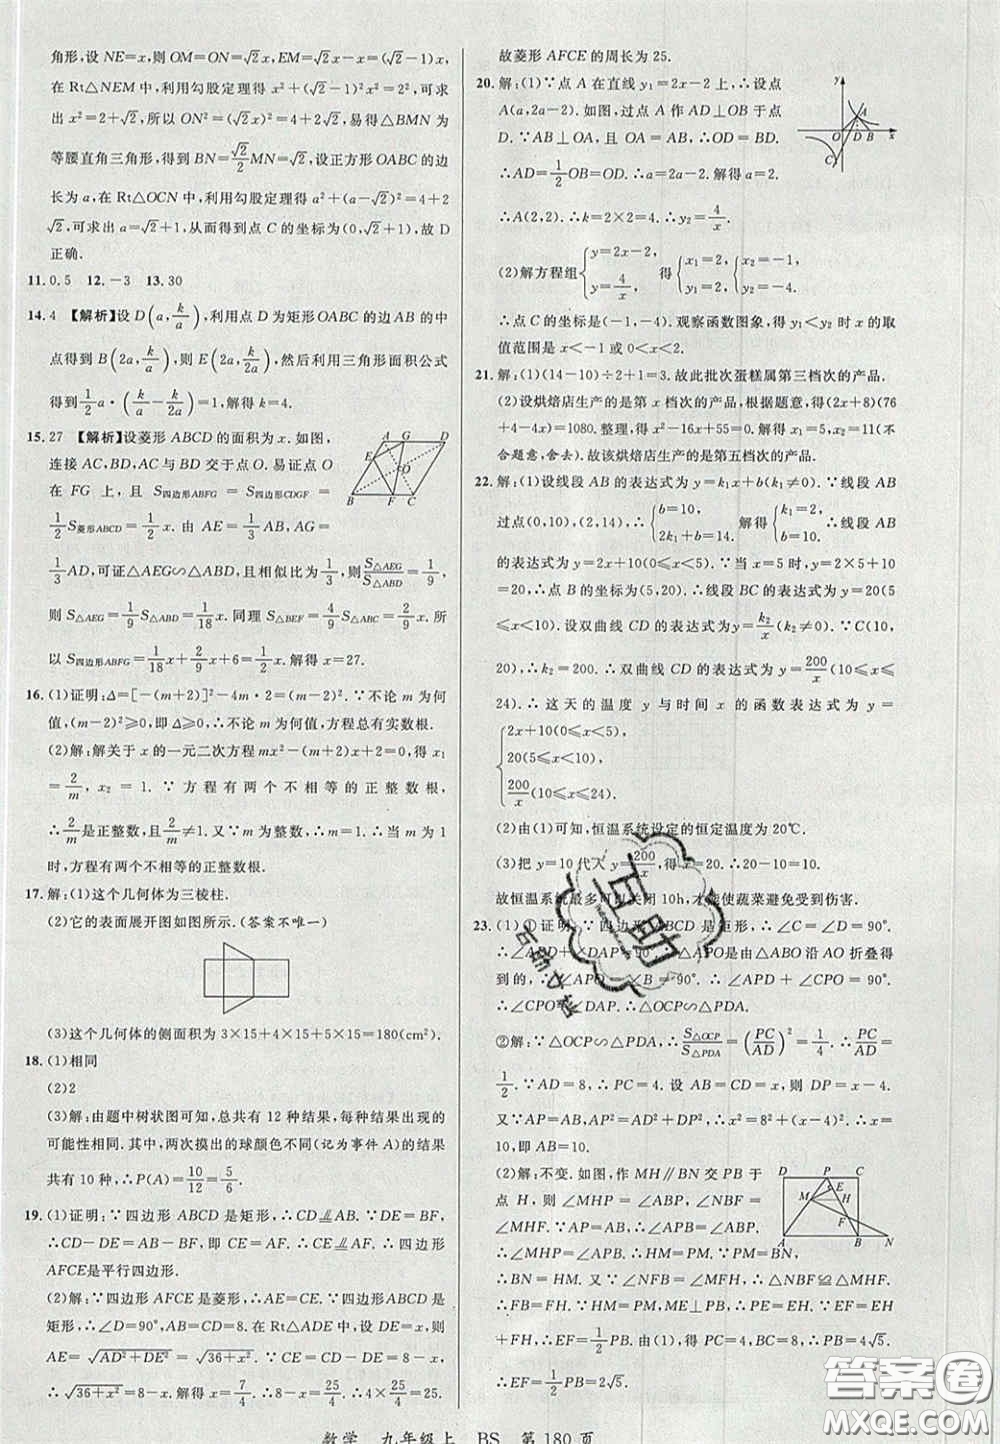 角形,设 NE=x,则 OM=ON=√2x,EM=√2x-x=(√2-1)x,
在 Rt△NEM 中,利用勾股定理得 x²+(√2-1)²x²=2²,可
求出 x²=2+√2,所以 ON²=(√2x)²=4+2√2,易得△BMN 为
等腰直角三角形,所以得到 BN=√2/2MN=√2,设正方形 OABC 的边
长为 a,在 Rt△OCN 中,利用勾股定理得 a²+(a-√2)²=4+2
√2,可求出 a=√2+1,从而得到点 C 的坐标为(0,√2+1),故 D
正确.
11.0.5 12.-3 13.30
14.4 【解析】设 D(a,k/a),利用点 D 为矩形 OABC 的边 AB 的中
点得到 B(2a,k/a),则 E(2a,k/2a),然后利用三角形面积公式
得到 1/2a·(k/a-k/2a)=1,解得 k=4.
15.27 【解析】设菱形 ABCD 的面积为 x.如图,
连接 AC,BD,AC 与 BD 交于点 O.易证点 O
在 FG 上,且 S四边形ABFG=S四边形CDGF=
1/2S菱形ABCD=1/2x.由 AE=1/3AB,AG=
1/3AD,可证△AEG∽△ABD,且相似比为1/3,则S△AEG/S△ABD=1/9,
则 S△AEG=1/9S△ABD=1/18x.同理 S△BEF=4/9S△ABC=2/9x.所
以 S四边形ABFG=1/18x+2/9x+6=1/2x.解得 x=27.
16.(1)证明:Δ=[-(m+2)]²-4m·2=(m-2)².∵不论 m 为何
值,(m-2)²≥0,即 Δ≥0,∴不论 m 为何值,方程总有实数根.
(2)解:解关于 x 的一元二次方程 mx²-(m+2)x+2=0,得 x₁
=2/m,x₂=1.∵方程有两个不相等的正整数根,
∴2/m是正整数,且2/m≠1.又∵m 为整数,∴m=1.∴当 m=1
时,方程有两个不相等的正整数根.
17.解:(1)这个几何体为三棱柱.
(2)它的表面展开图如图所示.(答案不唯一)
(3)这个几何体的侧面积为 3×15+4×15+5×15=180(cm²).
18.(1)相同
(2)2
(3)解:由题中树状图可知,总共有 12 种结果,每种结果出现的
可能性相同.其中,两次摸出的球颜色不同(记为事件 A)的结果
共有 10 种,∴P(A)=10/12=5/6.
19.(1)证明:∵四边形 ABCD 是矩形,∴CD⫽AB.∵DE=BF,
∴CD-DE=AB-BF,即 CE=AF.∴CE⫽AF.∴四边形
AFCE是平行四边形.
(2)解:∵四边形 AFCE 是菱形,∴AE=CE.∵四边形ABCD 是
矩形,∴∠D=90°,AB=CD=8.在 Rt△ADE 中,设 DE=x,则
AE=√AD²+DE²=√36+x².∵CE=CD-DE=8-x,
∴√36+x²=8-x.解得 x=7/4.∴√36+x²=8-x=25/4.
故菱形 AFCE 的周长为 25.
20.解:(1)∵点 A 在直线 y₁=2x-2 上,∴设点
A(a,2a-2).如图,过点 A 作 AD⊥OB 于点
D.∵AB⊥OA,且 OA=AB,∴OD=BD.
∴AD=1/2OB=OD.∴2a-2=a.解得 a=2.
∴A(2,2).∴k=2×2=4.∴y₂=4/x.
(2)解方程组{y=2x-2,y=4/x 得{x₁=2,y₁=2,{x₂=-1,y₂=-4.
∴点 C 的坐标是(-1,-4).观察函数图象,得 y₁<y₂ 时 x 的取
值范围是 x<-1 或 0<x<2.
21.解:(1)(14-10)÷2+1=3.故此批次蛋糕属第三档次的产品.
(2)设烘焙店生产的是第 x 档次的产品,根据题意,得(2x+8)(76
+4-4x)=1080.整理,得 x²-16x+55=0.解得 x₁=5,x₂=11(不
合题意,舍去).故该烘焙店生产的是第五档次的产品.
22.解:(1)设线段 AB 的表达式为 y=k₁x+b(k₁≠0).∵线段 AB
过点(0,10),(2,14),∴{b=10,2k₁+b=14.解得{k₁=2,b=10.∴线段 AB
的表达式为 y=2x+10(0≤x<5).∵当 x=5 时,y=2×5+10
=20,∴点 B 的坐标为(5,20).∴线段 BC 的表达式为 y=20(5
≤x<10).设双曲线 CD 的表达式为 y=k₂/x(k₂≠0).∵C(10,
20),∴k₂=200.∴双曲线 CD 的表达式为 y=200/x(10≤x≤
24).∴这天的温度 y 与时间 x 的函数表达式为 y=
{2x+10(0≤x<5),
20(5≤x<10),
200/x(10≤x≤24).
(2)由(1)可知,恒温系统设定的恒定温度为 20℃.
(3)把 y=10 代入 y=200/x,得 x=20.∴20-10=10.
故恒温系统最多可以关闭 10h,才能使蔬菜避免受到伤害.
23.(1)①证明:∵四边形 ABCD 是矩形,∴∠C=∠D=90°.
∴∠APD+∠DAP=90°.∵△APO 由△ABO 沿 AO 折叠得
到的,∴∠APO=∠B=90°.∴∠APD+∠CPO=90°.
∴∠CPO=∠DAP.∴△OCP∽△PDA.
②解:∵△OCP∽△PDA,∴S△OCP/S△PDA=(PC/AD)²=1/4.∴PC/AD=
1/2.∵AD=8,∴PC=4.设 AB=x,则 DP=x-4.
又∵AP=AB=x,AP²=AD²+DP²,∴x²=8²+(x-4)².∴x=
10,即 AB=10.
(2)解:不变.如图,作 MH∥BN 交 PB 于
点 H,则∠MHP=∠ABP,∠MHF=∠NBF.
∵AP=AB,∴∠APB=∠ABP.
∴∠MHP=∠APB.∴MP=MH.∵MP=BN,
∴BN=HM.又∵∠NFB=∠MFH,∴△NBF≌△MHF.
∴FB=FH.∵MP=MH,ME⊥PB,∴EH=PE.∴EF=EH
+FH,∴EF=1/2PB.由(1),得 PC=4,BC=8,∴PB=4√5.
∴EF=1/2PB=2√5.
A G D E O B F C
y A O D B x C
D P C E M H F A B N
互助
答案圈
MXQE.COM
数学 九年级上 BS 第 180 页